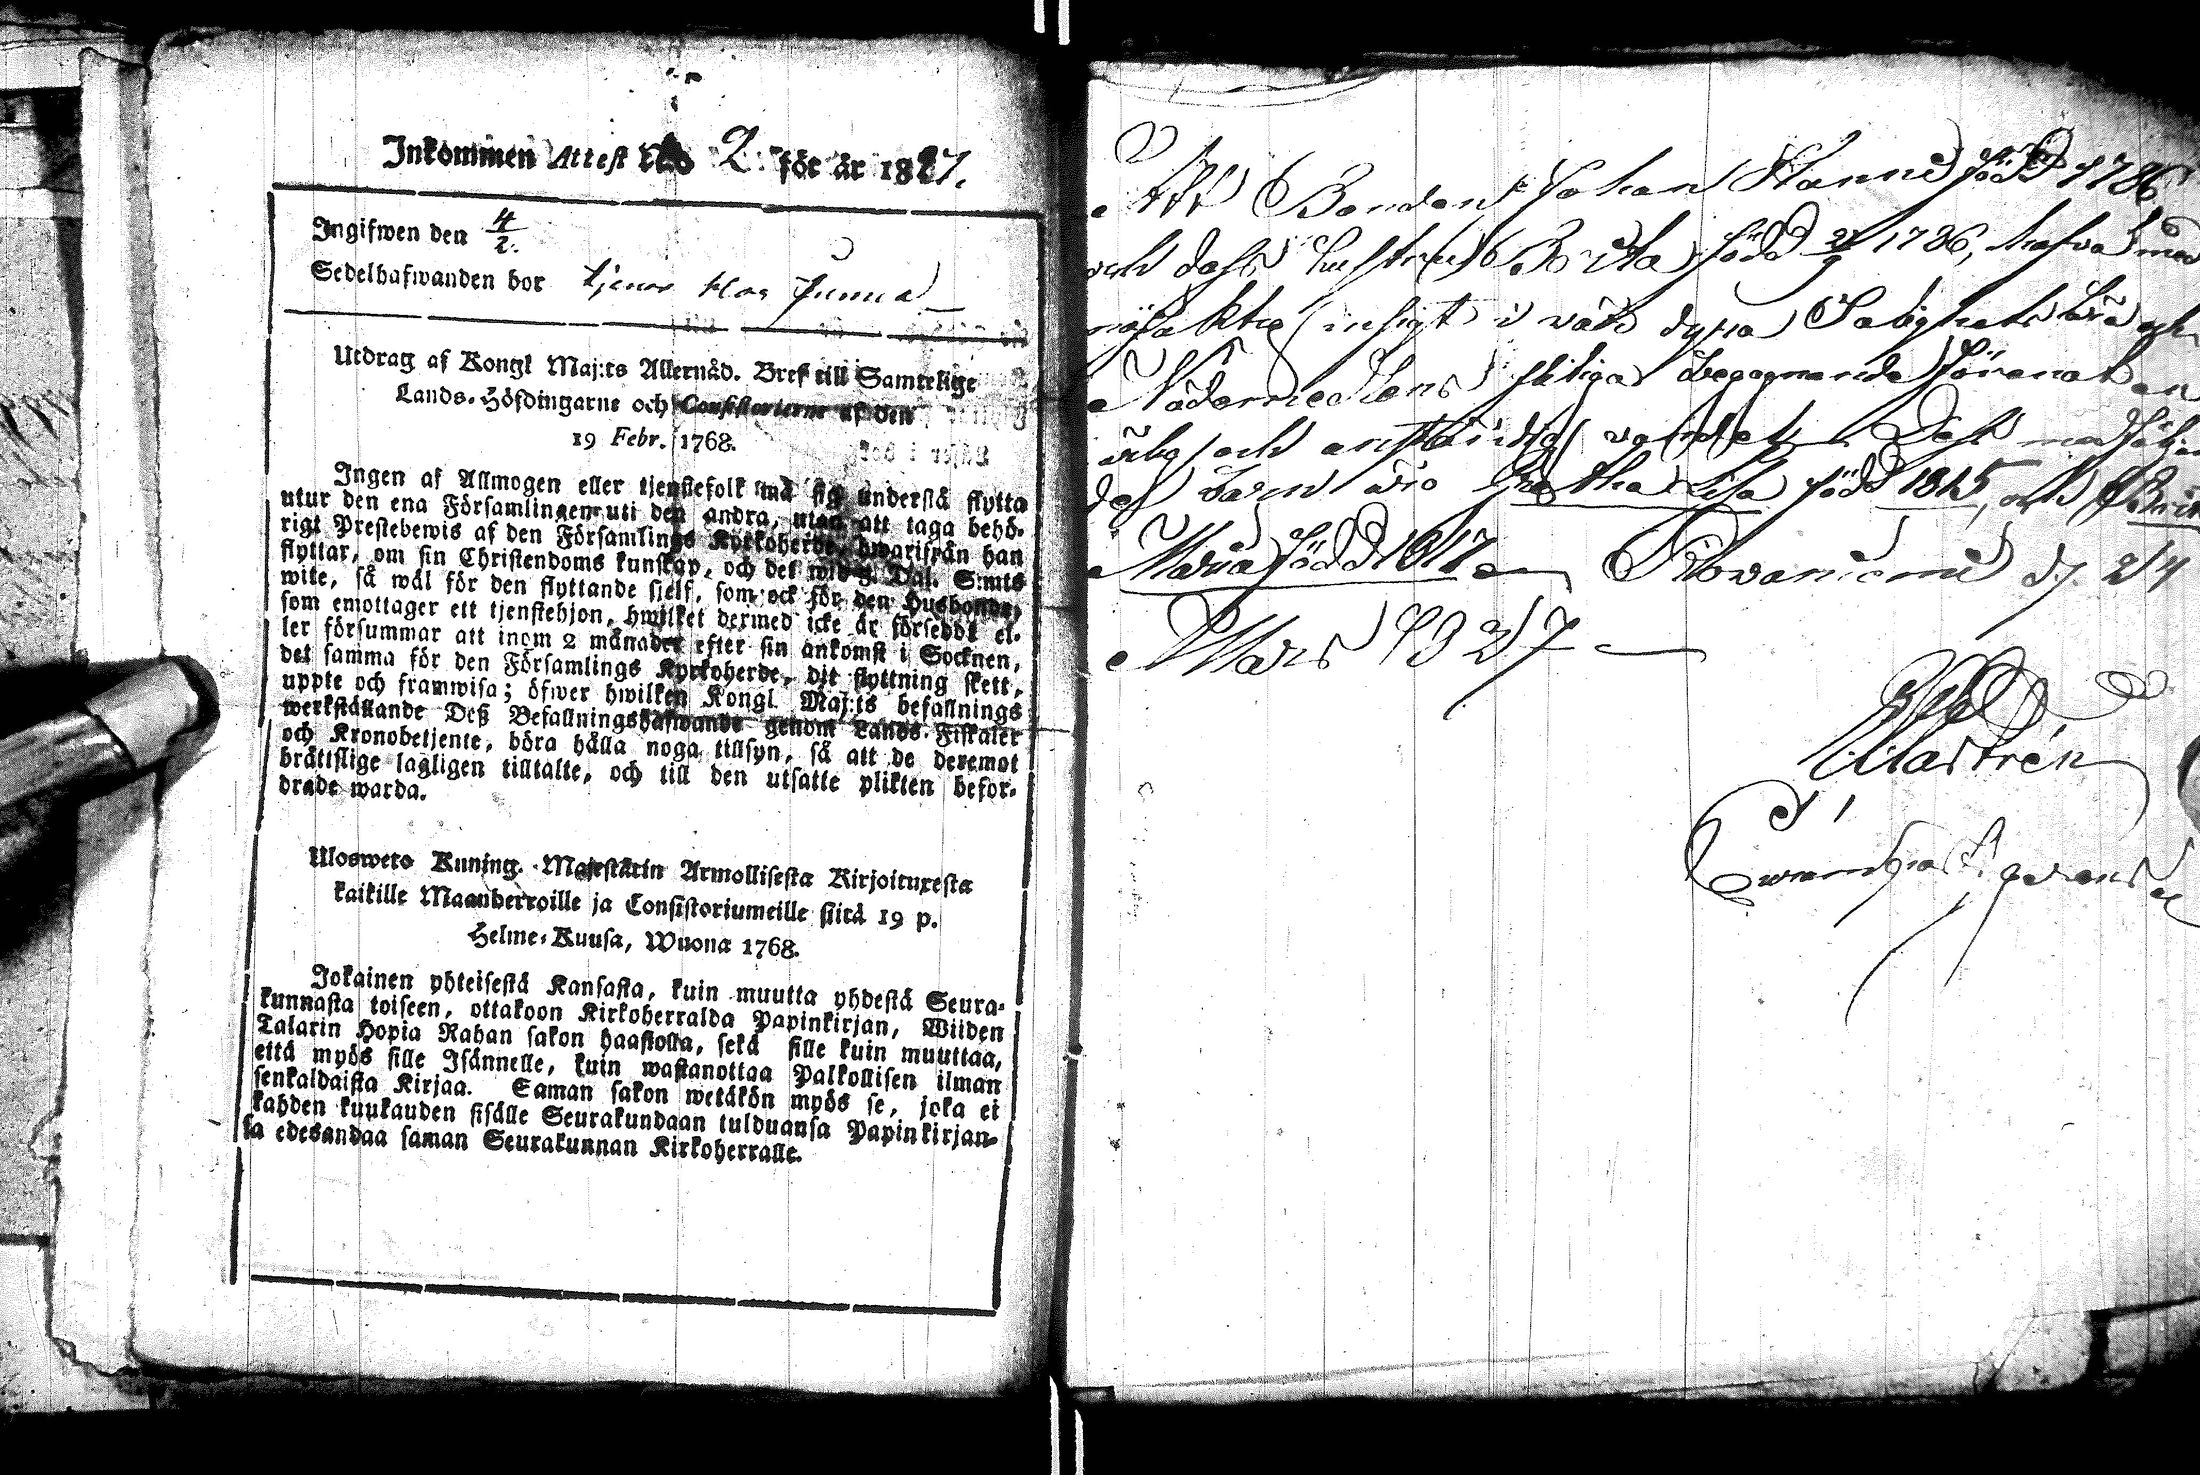 Inkommen Attest No 2 för år 1827.
Ingifwen den 4/2.
Sedelhafwanden bor tjenar hos Junna
Utdrag af Kongl Maj:ts Allernåd. Bref till Samtelige
Lands-Höfdingarne och Consistorierne af den
19 Febr. 1768.
Ingen af Allmogen eller tjenstefolk må sig understå flytta
utur den ena Församlingen uti den andra, utan att taga behö-
rigt Prestebewis af den Församlings Kyrkoherde, hwarifrån han
flyttar, om sin Christendoms kunskap, och det wid 5. Dal. S:mts
wite, så wäl för den flyttande sjelf, som ock för den Husbonde,
som emottager ett tjenstehjon, hwilket dermed icke är försedt el-
ler försummar att inom 2 månader efter sin ankomst i Socknen,
det samma för den Församlings Kyrkoherde, dit flyttning skett,
uppte och framwisa; öfwer hwilken Kongl Maj:ts befallnings
werkställande Deß Befallningshafwande genom Lands-Fiskaler
och Kronobetjente, böra hålla noga tillsyn, så att de deremot
brättslige lagligen tilltalte, och till den utsatte plikten befor-
drade warda.
Ulosweto Kuning. Majestätin Armollisesta Kirjoituxesta
kaikille Maanherroille ja Consistoriumeille siitä 19 p.
Helme-Kuusa, Wuona 1768.
Jokainen yhteisestä Kansasta, kuin muutta yhdestä Seura-
kunnasta toiseen, ottakoon Kirkoherralda Papinkirjan, Wiiden
Talarin Hopia Rahan sakon haastolla, sekä sille kuin muuttaa,
että myös sille Isännelle, kuin wastanottaa Palkollisen ilman
senkaldaista Kirjaa. Saman sakon wetäkön myös se, joka ei
kahden kuukauden sisälle Seurakundaan tulduansa Papinkirjan-
sa edesandaa saman Seurakunnan Kirkoherralle.
Att Bonden Johan Hannu född 1786
och dess hustru Brita född 1786, hafva med
insigt i vår dyra Salighets lära och
Nådemedlens flitiga begagnande förenat en
ärbar och anständig vandel. Dess medföljan
de barn äro Gretha Lisa född 1815, och Brita
Maria född 1817 Rovaniemi d. 24
Mars 1827
Castrén